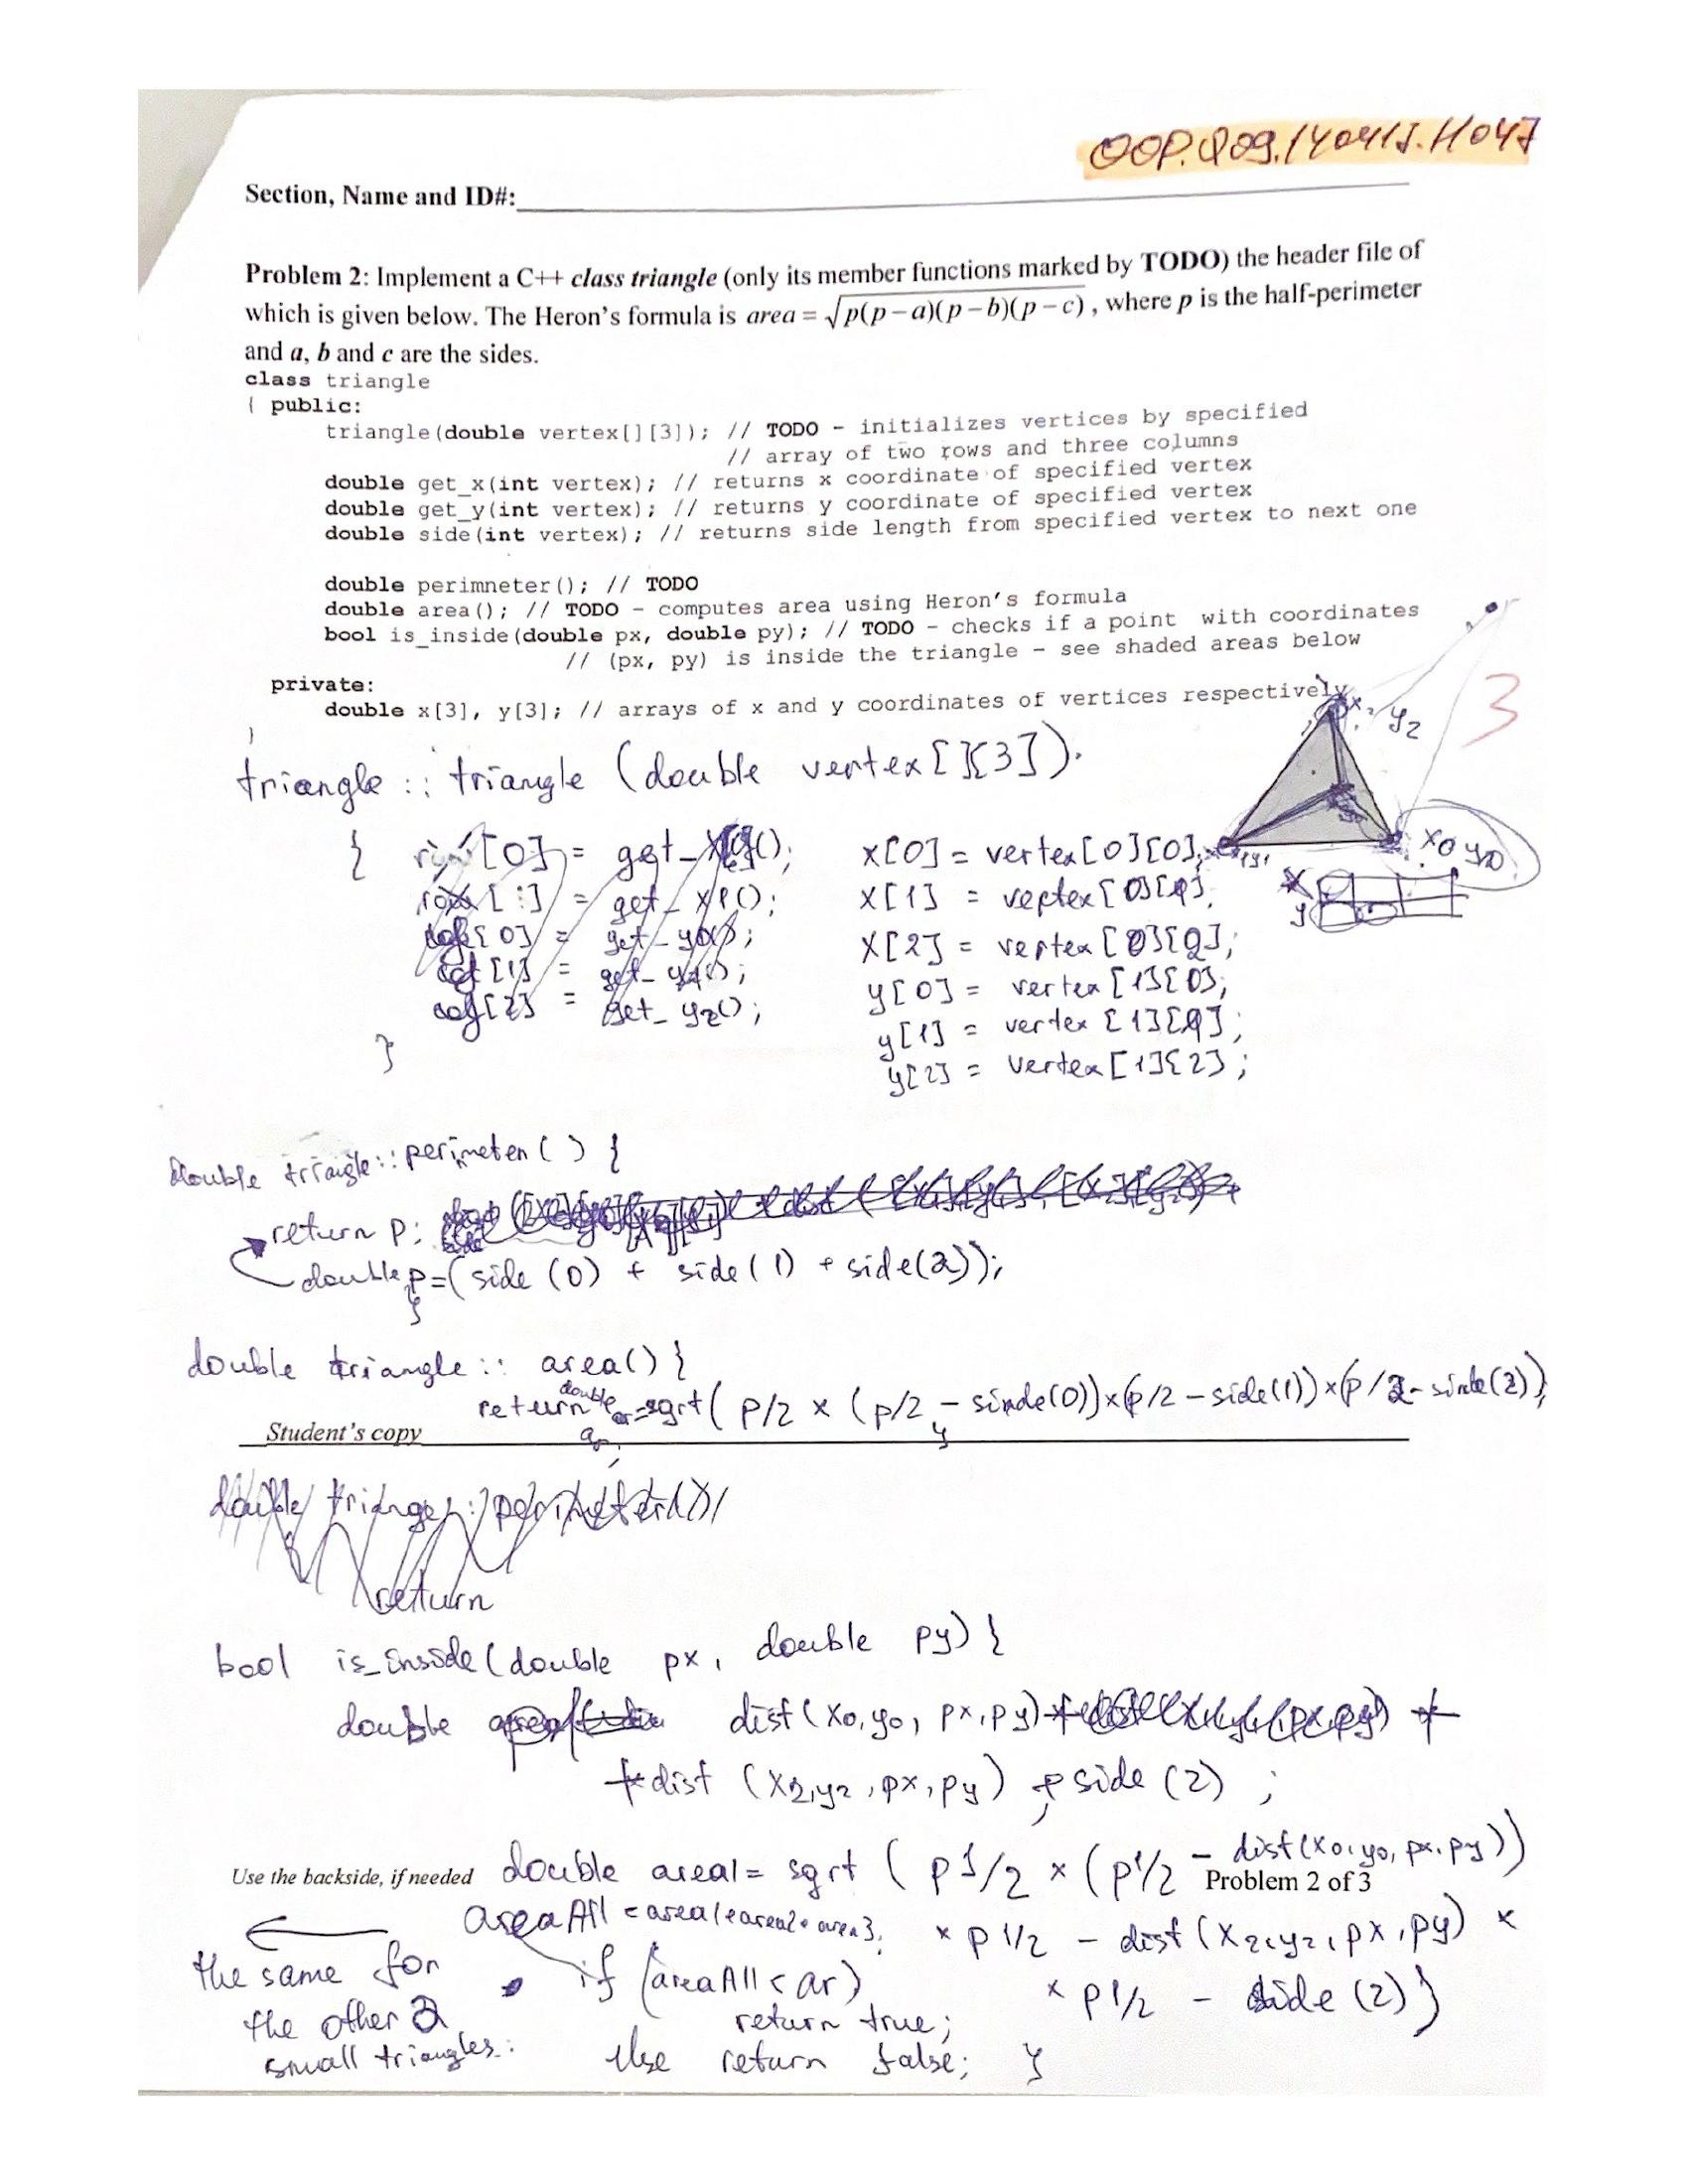 OOP.Q09.140415.H047
Section, Name and ID#:
Problem 2: Implement a C++ class triangle (only its member functions marked by TODO) the header file of
which is given below. The Heron's formula is area = √p(p−a)(p−b)(p−c) , where p is the half-perimeter
and a, b and c are the sides.
class triangle
{ public:
triangle(double vertex[][3]); // TODO - initializes vertices by specified
// array of two rows and three columns
double get_x(int vertex); // returns x coordinate of specified vertex
double get_y(int vertex); // returns y coordinate of specified vertex
double side(int vertex); // returns side length from specified vertex to next one
double perimneter(); // TODO
double area(); // TODO - computes area using Heron's formula
bool is_inside(double px, double py); // TODO - checks if a point with coordinates
// (px, py) is inside the triangle - see shaded areas below
private:
double x[3], y[3]; // arrays of x and y coordinates of vertices respectively
}
y2
3
triangle :: triangle (double vertex[][3]).
{ [0] = get_
x[0] = vertex[0][0];
x0 y0
[1] = get_x1();
x[1] = vertex[0][1];
x
y
[0] = get_y0();
x[2] = vertex[0][2];
[1] = get_y1();
y[0] = vertex[1][0];
col[2] = get_y2();
y[1] = vertex[1][1];
}
y[2] = vertex[1][2];
double triangle::perimeter() {
return p;
double p=(side(0) + side(1) + side(2));
}
double triangle:: area() {
double
return ar=sqrt( p/2 × (p/2 - side(0))×(p/2 - side(1))×(p/2 - side(2));
ar;
}
Student's copy
double triange::perimeter()
return
bool is_inside(double px, double py) {
double dist(x0,y0, px,py)+
+dist (x2,y2,px,py) + side (2) ;
Use the backside, if needed
double area1= sqrt ( p1/2 × (p1/2 - dist(x0,y0,px,py))
Problem 2 of 3
areaAll = area1+area2+area3;
× p1/2 - dist(x2,y2,px,py) ×
the same for
if (areaAll < ar)
× p1/2 - side(2))
the other 2
return true;
small triangles.
else return false; }